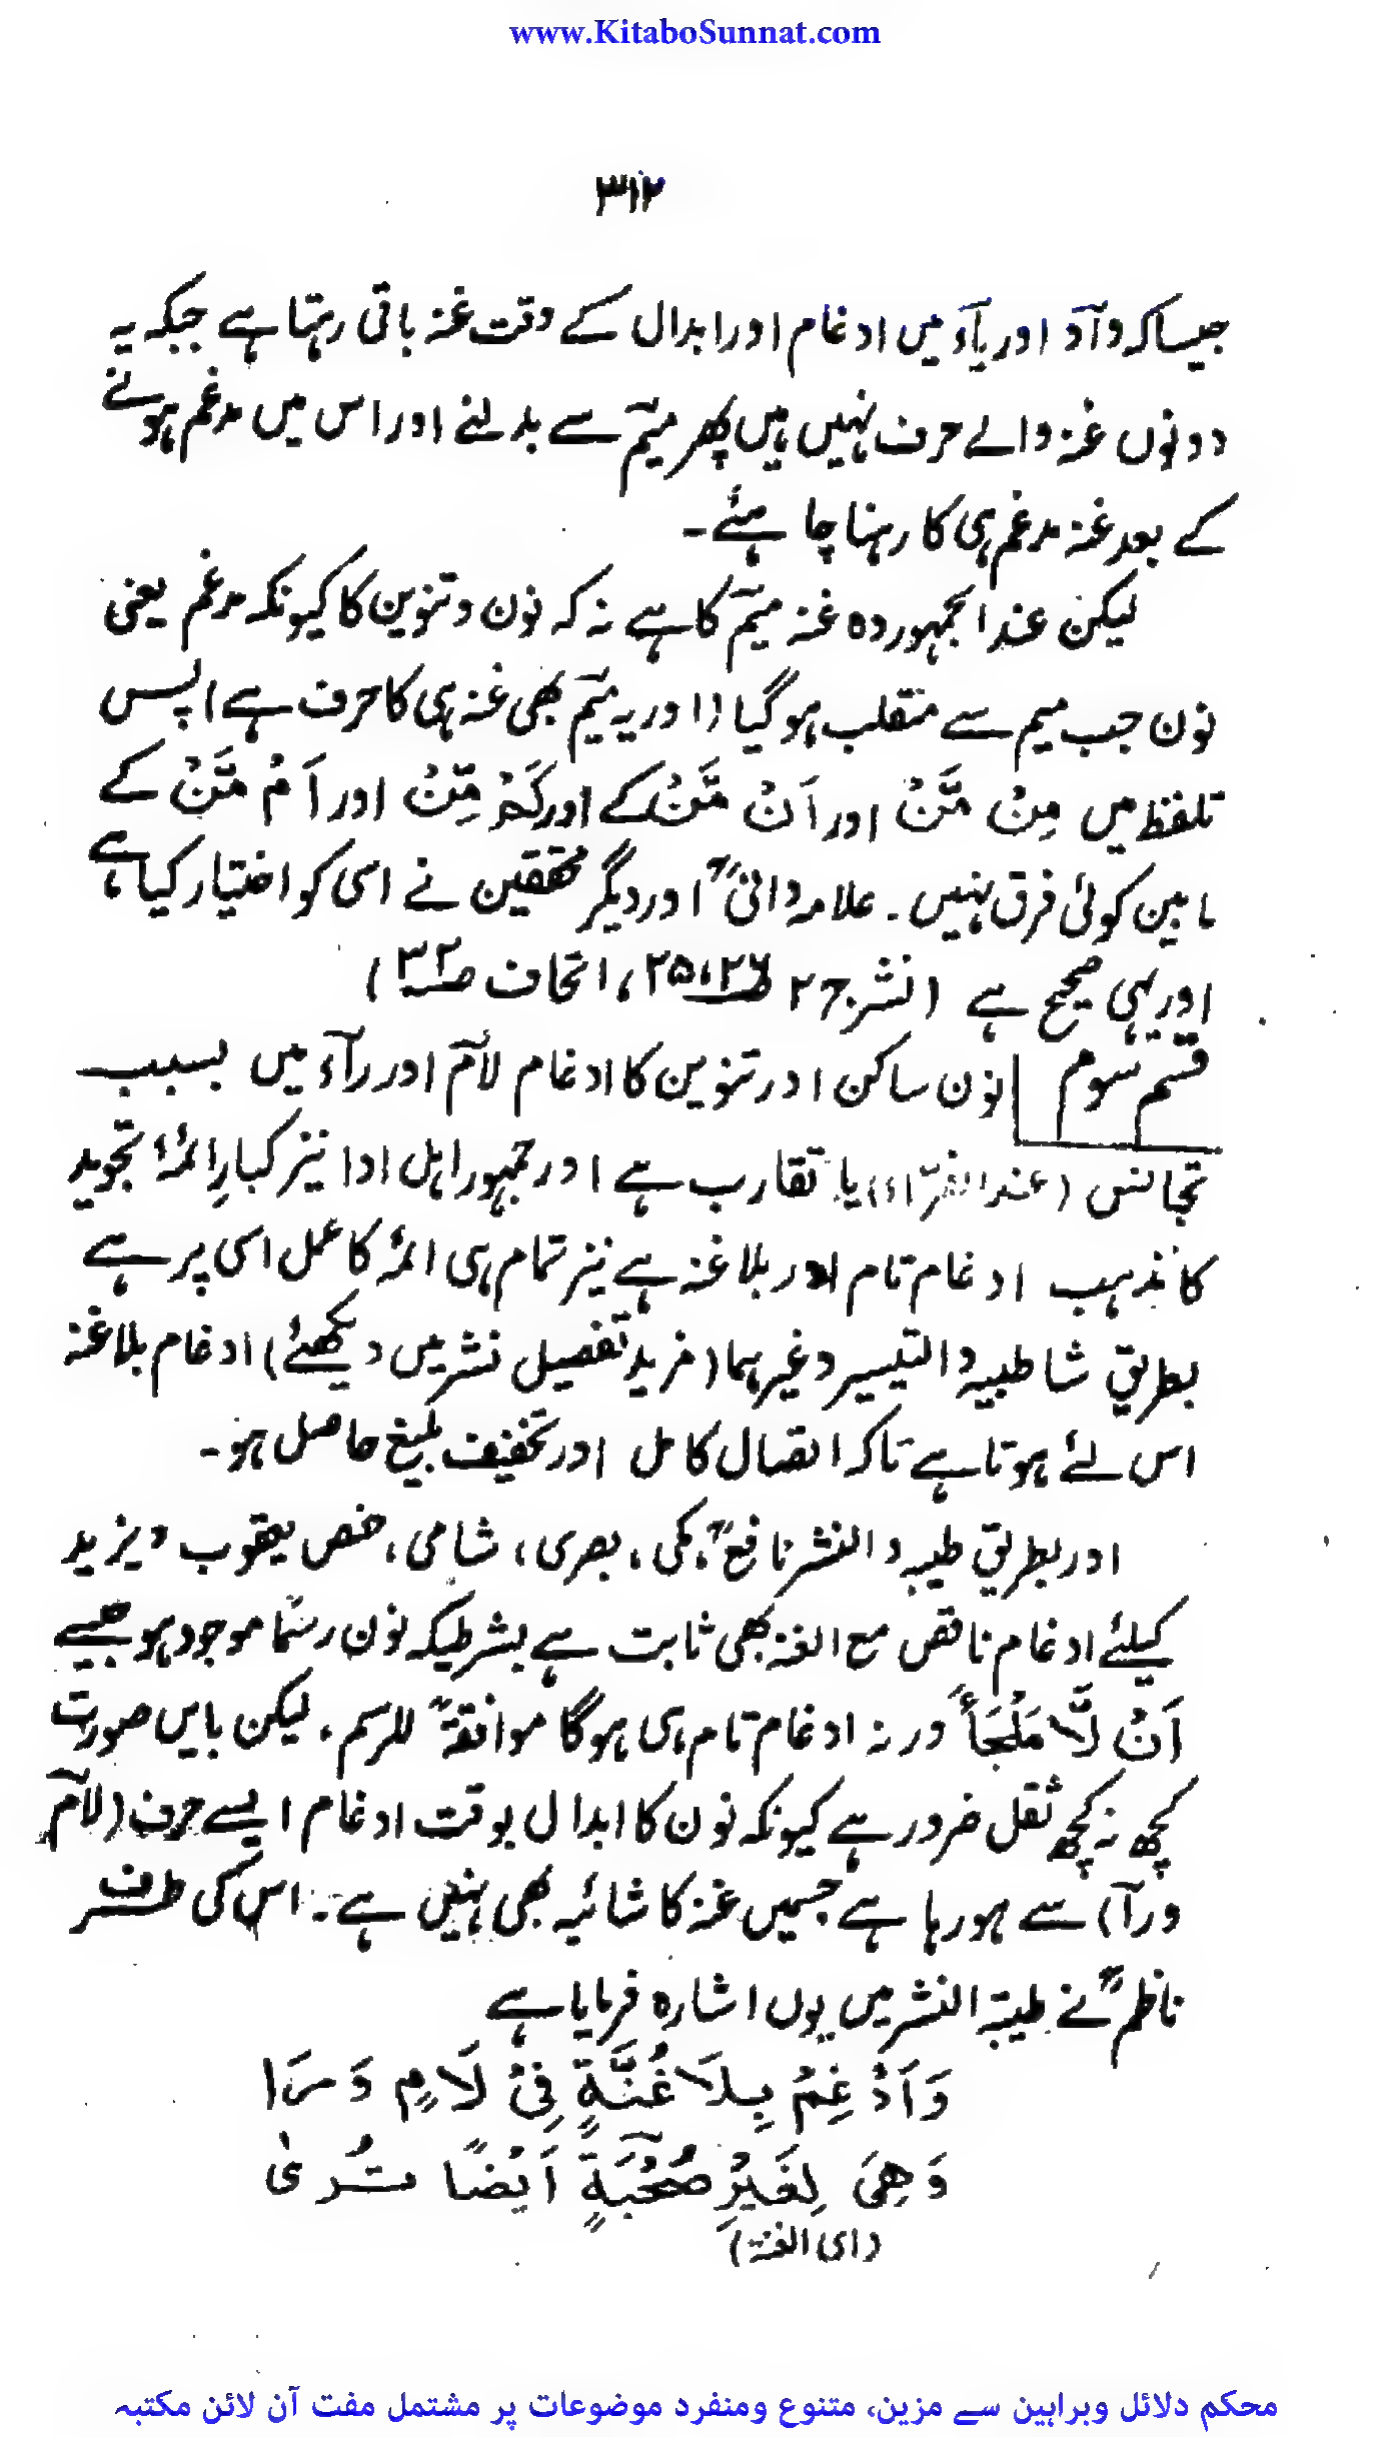 www.KitaboSunnat.com
۳۱۲
جیساکہ وآو اور یآء میں ادغام اور ابدال کے وقت غنہ باقی رہتا ہے جبکہ یہ
دونوں غنہ والے حرف نہیں ہیں پھر میٓم سے بدلنے اور اس میں مدغم ہونے
کے بعد غنہ مدغم ہی کا رہنا چاہئے۔
لیکن عندالجمہور وہ غنہ میٓم کا ہے نہ کہ نون وتنوین کا کیونکہ مدغم یعنی
نون جب میم سے منقلب ہوگیا (اور یہ میٓم بھی غنہ ہی کا حرف ہے) پس
تلفظ میں مِنْ مَّنْ اور اَنْ مَّنْ کے اور كَمْ مِّنْ اور اَمْ مَّنْ کے
مابین کوئی فرق نہیں۔ علامہ دانیؒ اور دیگر محققین نے اسی کو اختیار کیا ہے
اور یہی صحیح ہے (نشر ج۲ ص۲۵،۲۶، اتحاف ص۳۲)
قسم سوم نون ساکن اور تنوین کا ادغام لآم اور رآء میں بسبب
تجانس (عند الفرّاء) یا تقارب ہے اور جمہور اہل ادا نیز کبارِ ائمۂ تجوید
کا مذہب ادغام تام اور بلاغنہ ہے نیز تمام ہی ائمہ کا عمل اسی پر ہے
بطریقِ شاطبیہ والتیسیر وغیرہما (مزید تفصیل نشر میں دیکھئے) ادغام بلاغنہ
اس لئے ہوتا ہے تاکہ اتصال کامل اور تخفیف بلیغ حاصل ہو۔
اور بطریقِ طیبہ والنشر نافعؒ، مکی، بصری، شامی، حفص یعقوب ویزید
کیلئے ادغام ناقص مع الغنہ بھی ثابت ہے بشرطیکہ نون رسمًا موجود ہو جیسے
اَنْ لَّا مَلْجَأَ ورنہ ادغام تام ہی ہوگا موافقۃً للرسم۔ لیکن بایں صورت
کچھ نہ کچھ ثقل ضرور ہے کیونکہ نون کا ابدال بوقت ادغام ایسے حرف (لآم
ورآ) سے ہورہا ہے جسمیں غنہ کا شائبہ بھی نہیں ہے۔ اس کی طرف
ناظمؒ نے طیبۃ النشر میں یوں اشارہ فرمایا ہے
وَاَدْغِمْ بِلَا غُنَّةٍ فِیْ لَامٍ وَرَا
وَهِیَ لِغَیْرِ صُحْبَةٍ اَیْضًا تُرٰی
(ای الغنۃ)
محکم دلائل وبراہین سے مزین، متنوع ومنفرد موضوعات پر مشتمل مفت آن لائن مکتبہ